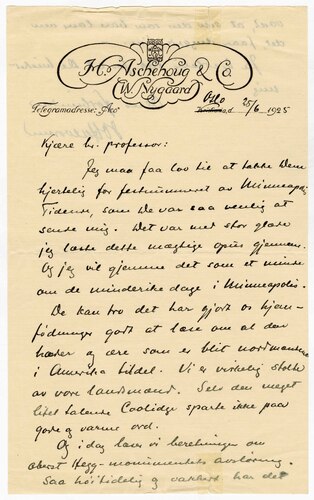 H. Aschehoug & Co.
(W. Nygaard)
Telegramadresse: "Aco"
Oslo 25/6 1925
Kjære hr. professor:
Jeg maa faa lov til at takke Dem
hjertelig for festnummeret av Minneapolis
Tidende, som De var saa venlig at
sende mig. Det var med stor glæde
jeg læste dette mægtige opus gjennem.
Og jeg vil gjemme det som et minde
om de minderike dage i Minneapolis.
De kan tro det har gjort os hjem-
fødninger godt at læse om al den
hæder og ære som er blit nordmændene
i Amerika tildel. Vi er virkelig stolte
av vore landsmænd. Selv den meget
litet talende Coolidge sparte ikke paa
gode og varme ord.
Og i dag læses vi beretningen om
oberst Hegg-monumentets avsløring.
Saa høitidelig og vakkert har det